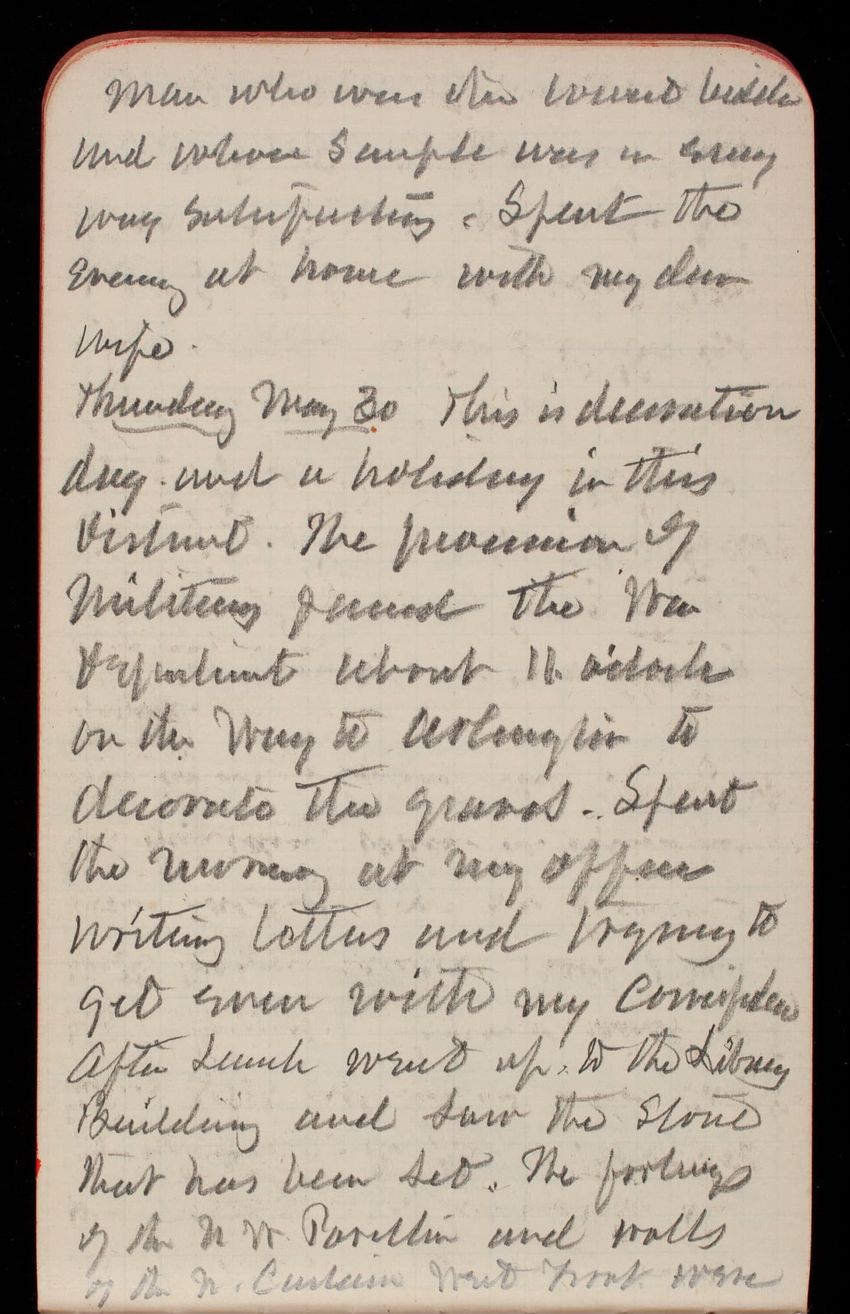 man who was the lowest bidder
and whose sample was in every
way satisfactory. Spent the
Evening at home with my dear
wife.
Thursday May 30 This is decoration
day. and a holiday in this
District. The procession of
Military passed the War
Department about 11. o'clock
on the Way to Arlington to
decorate the graves. Spent
the morning at my office
writing letters and trying to
get even with my
After Lunch went up to the Library
Building and saw the Stone
that has been set. The footings
of the N W Pavillin and walls
of the N. Curtain West Front were